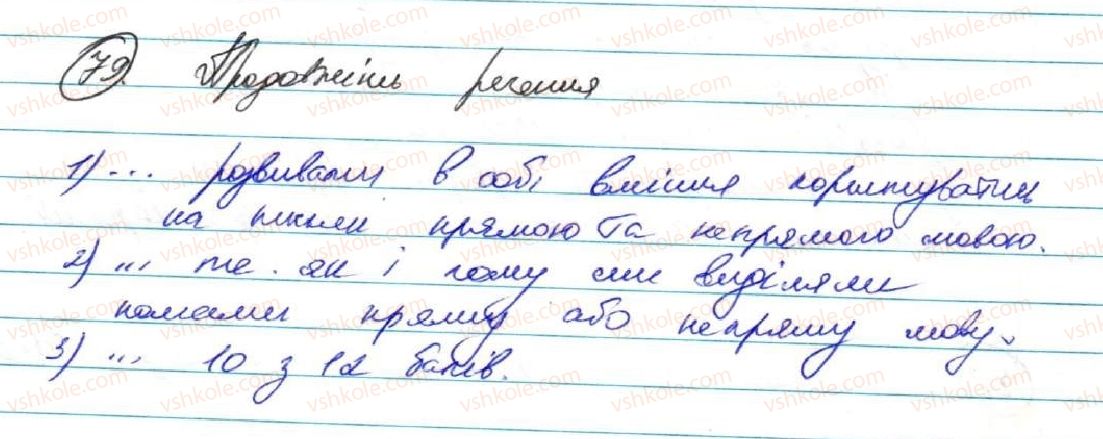 79. Продовжіть речення
1) ... розвивати в собі вміння користуватись
на письмі прямою та непрямою мовою.
2) ... те як і чому ми виділяли
комами пряму або непряму мову.
3) ... 10 з 12 балів.